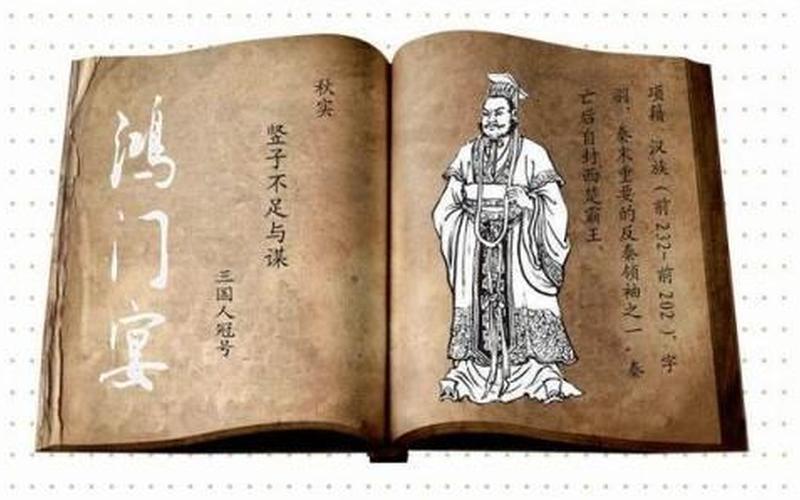 项籍，汉族（前232-前202），字
羽，秦末重要的反秦领袖之一。秦
亡后自封西楚霸王
秋实
竖子不足与谋
三国人冠号
鸿门宴